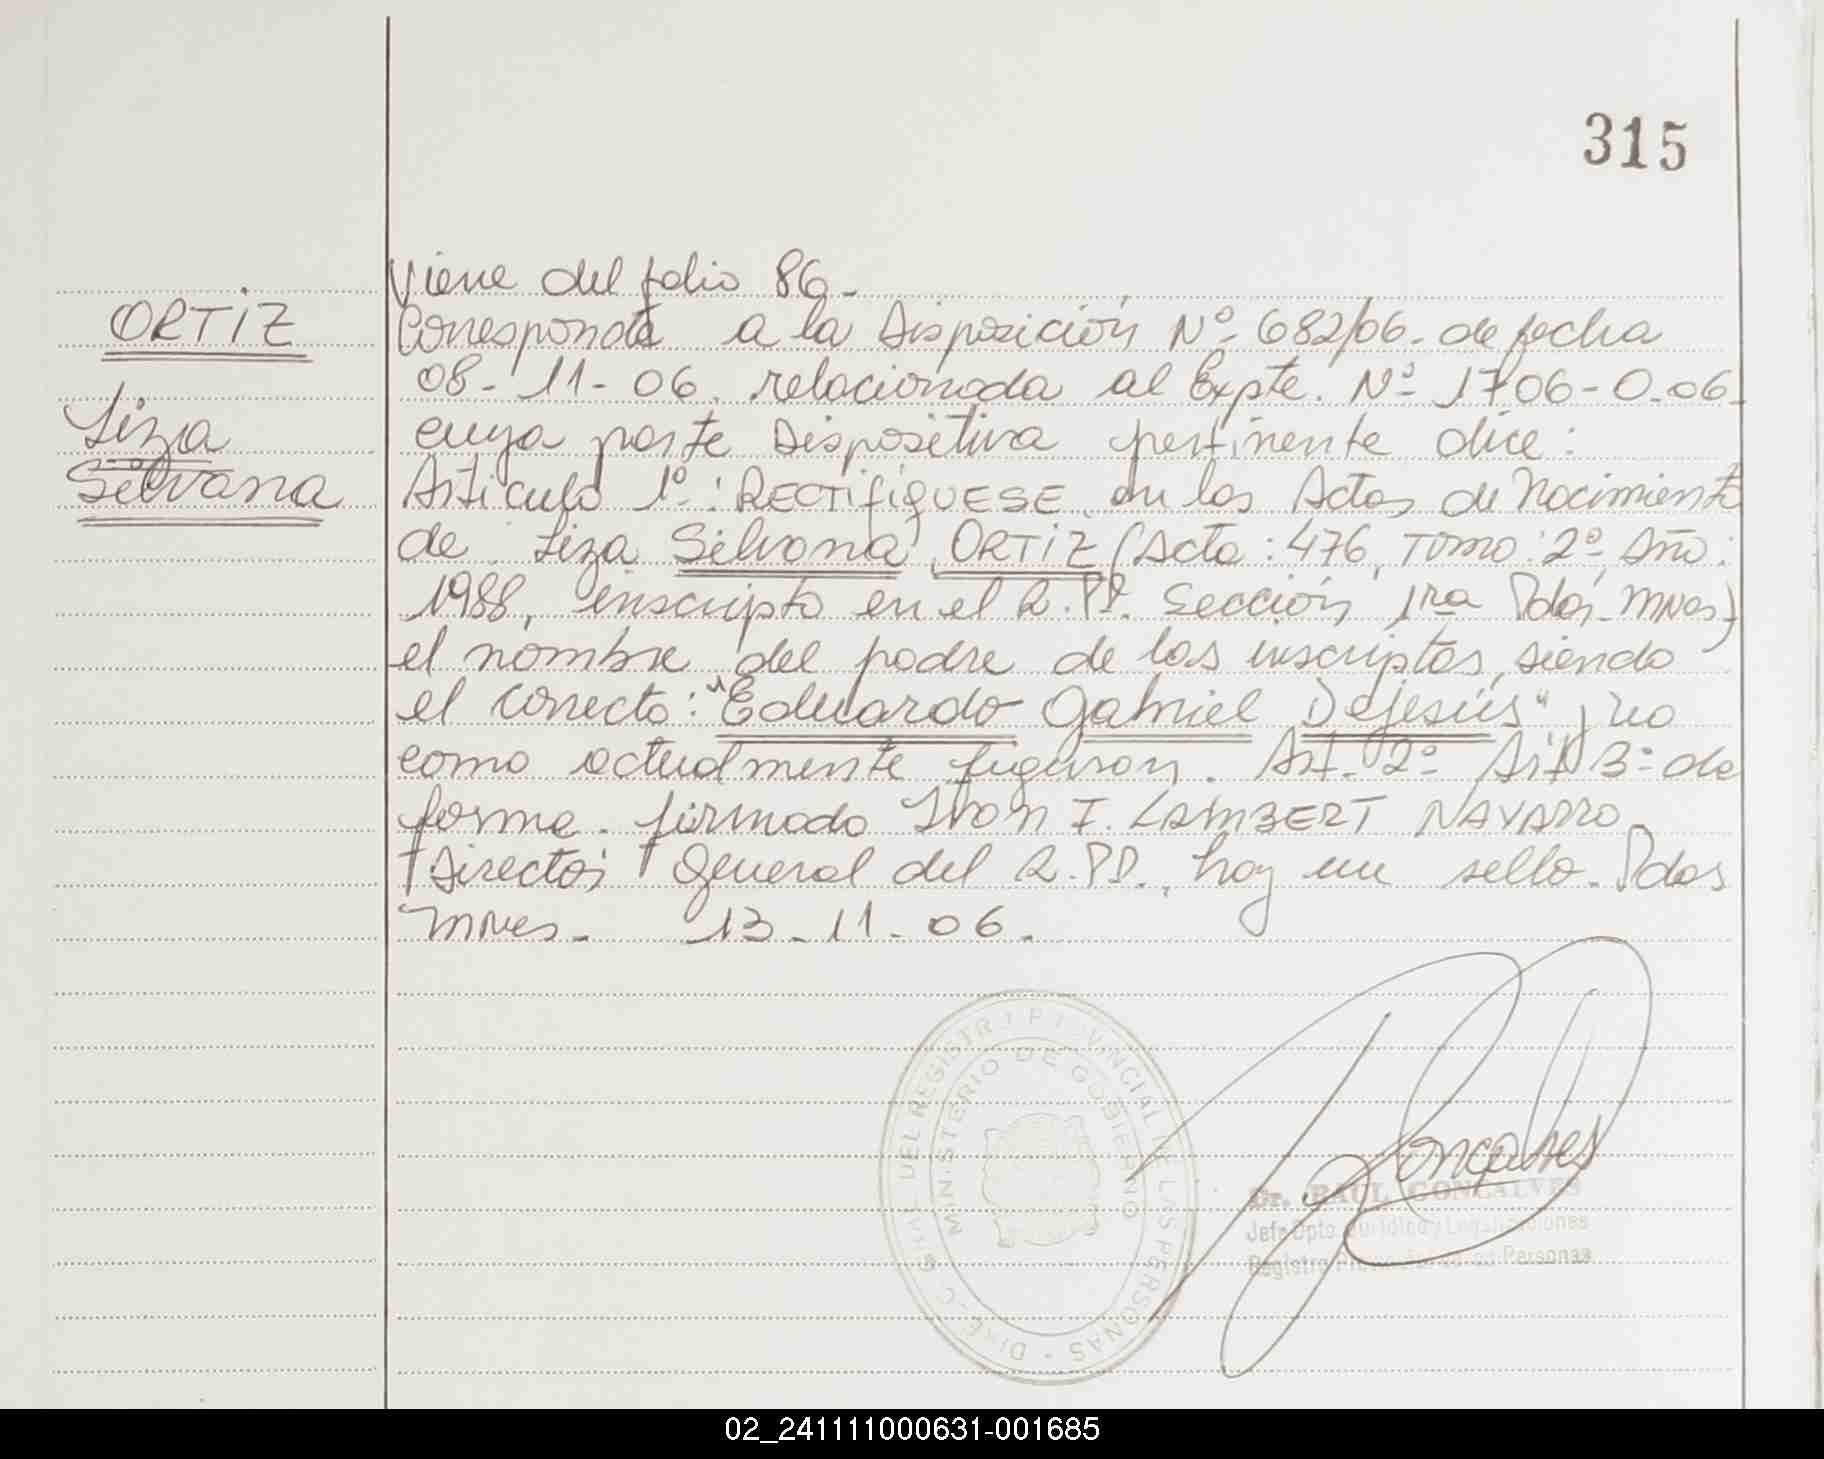 315
Viene del folio 86.-
ORTIZ
Corresponde a la Disposición Nº 682/06. de fecha
08-11-06. relacionada al Expte. Nº 1706-O-06
Liza
cuya parte Dispositiva pertinente dice:
Silvana
Articulo 1º: RECTIFIQUESE en las Actas de Nacimiento
de Liza Silvana ORTIZ (Acta: 476, Tomo: 2º Año:
1988, inscripta en el R.P.P. Sección 1ra Pdas-Mnes)
el nombre del padre de los inscriptos, siendo
el correcto: "Eduardo Gabriel Dejesús" y no
como actualmente figuran. Art. 2º Art 3º de
forma. firmado Ivan F. LAMBERT NAVARRO
Director General del R.P.P., hay un sello. Pdas
Mnes.- 13-11-06.
DIREC. GRAL. DEL REGISTRO PROVINCIAL DE LAS PERSONAS
MINISTERIO DE GOBIERNO
Gonçalves
Dr. RAUL GONCALVES
Jefe Dpto. Jurídico y Legalizaciones
Registro Provincial de las Personas
02_241111000631-001685